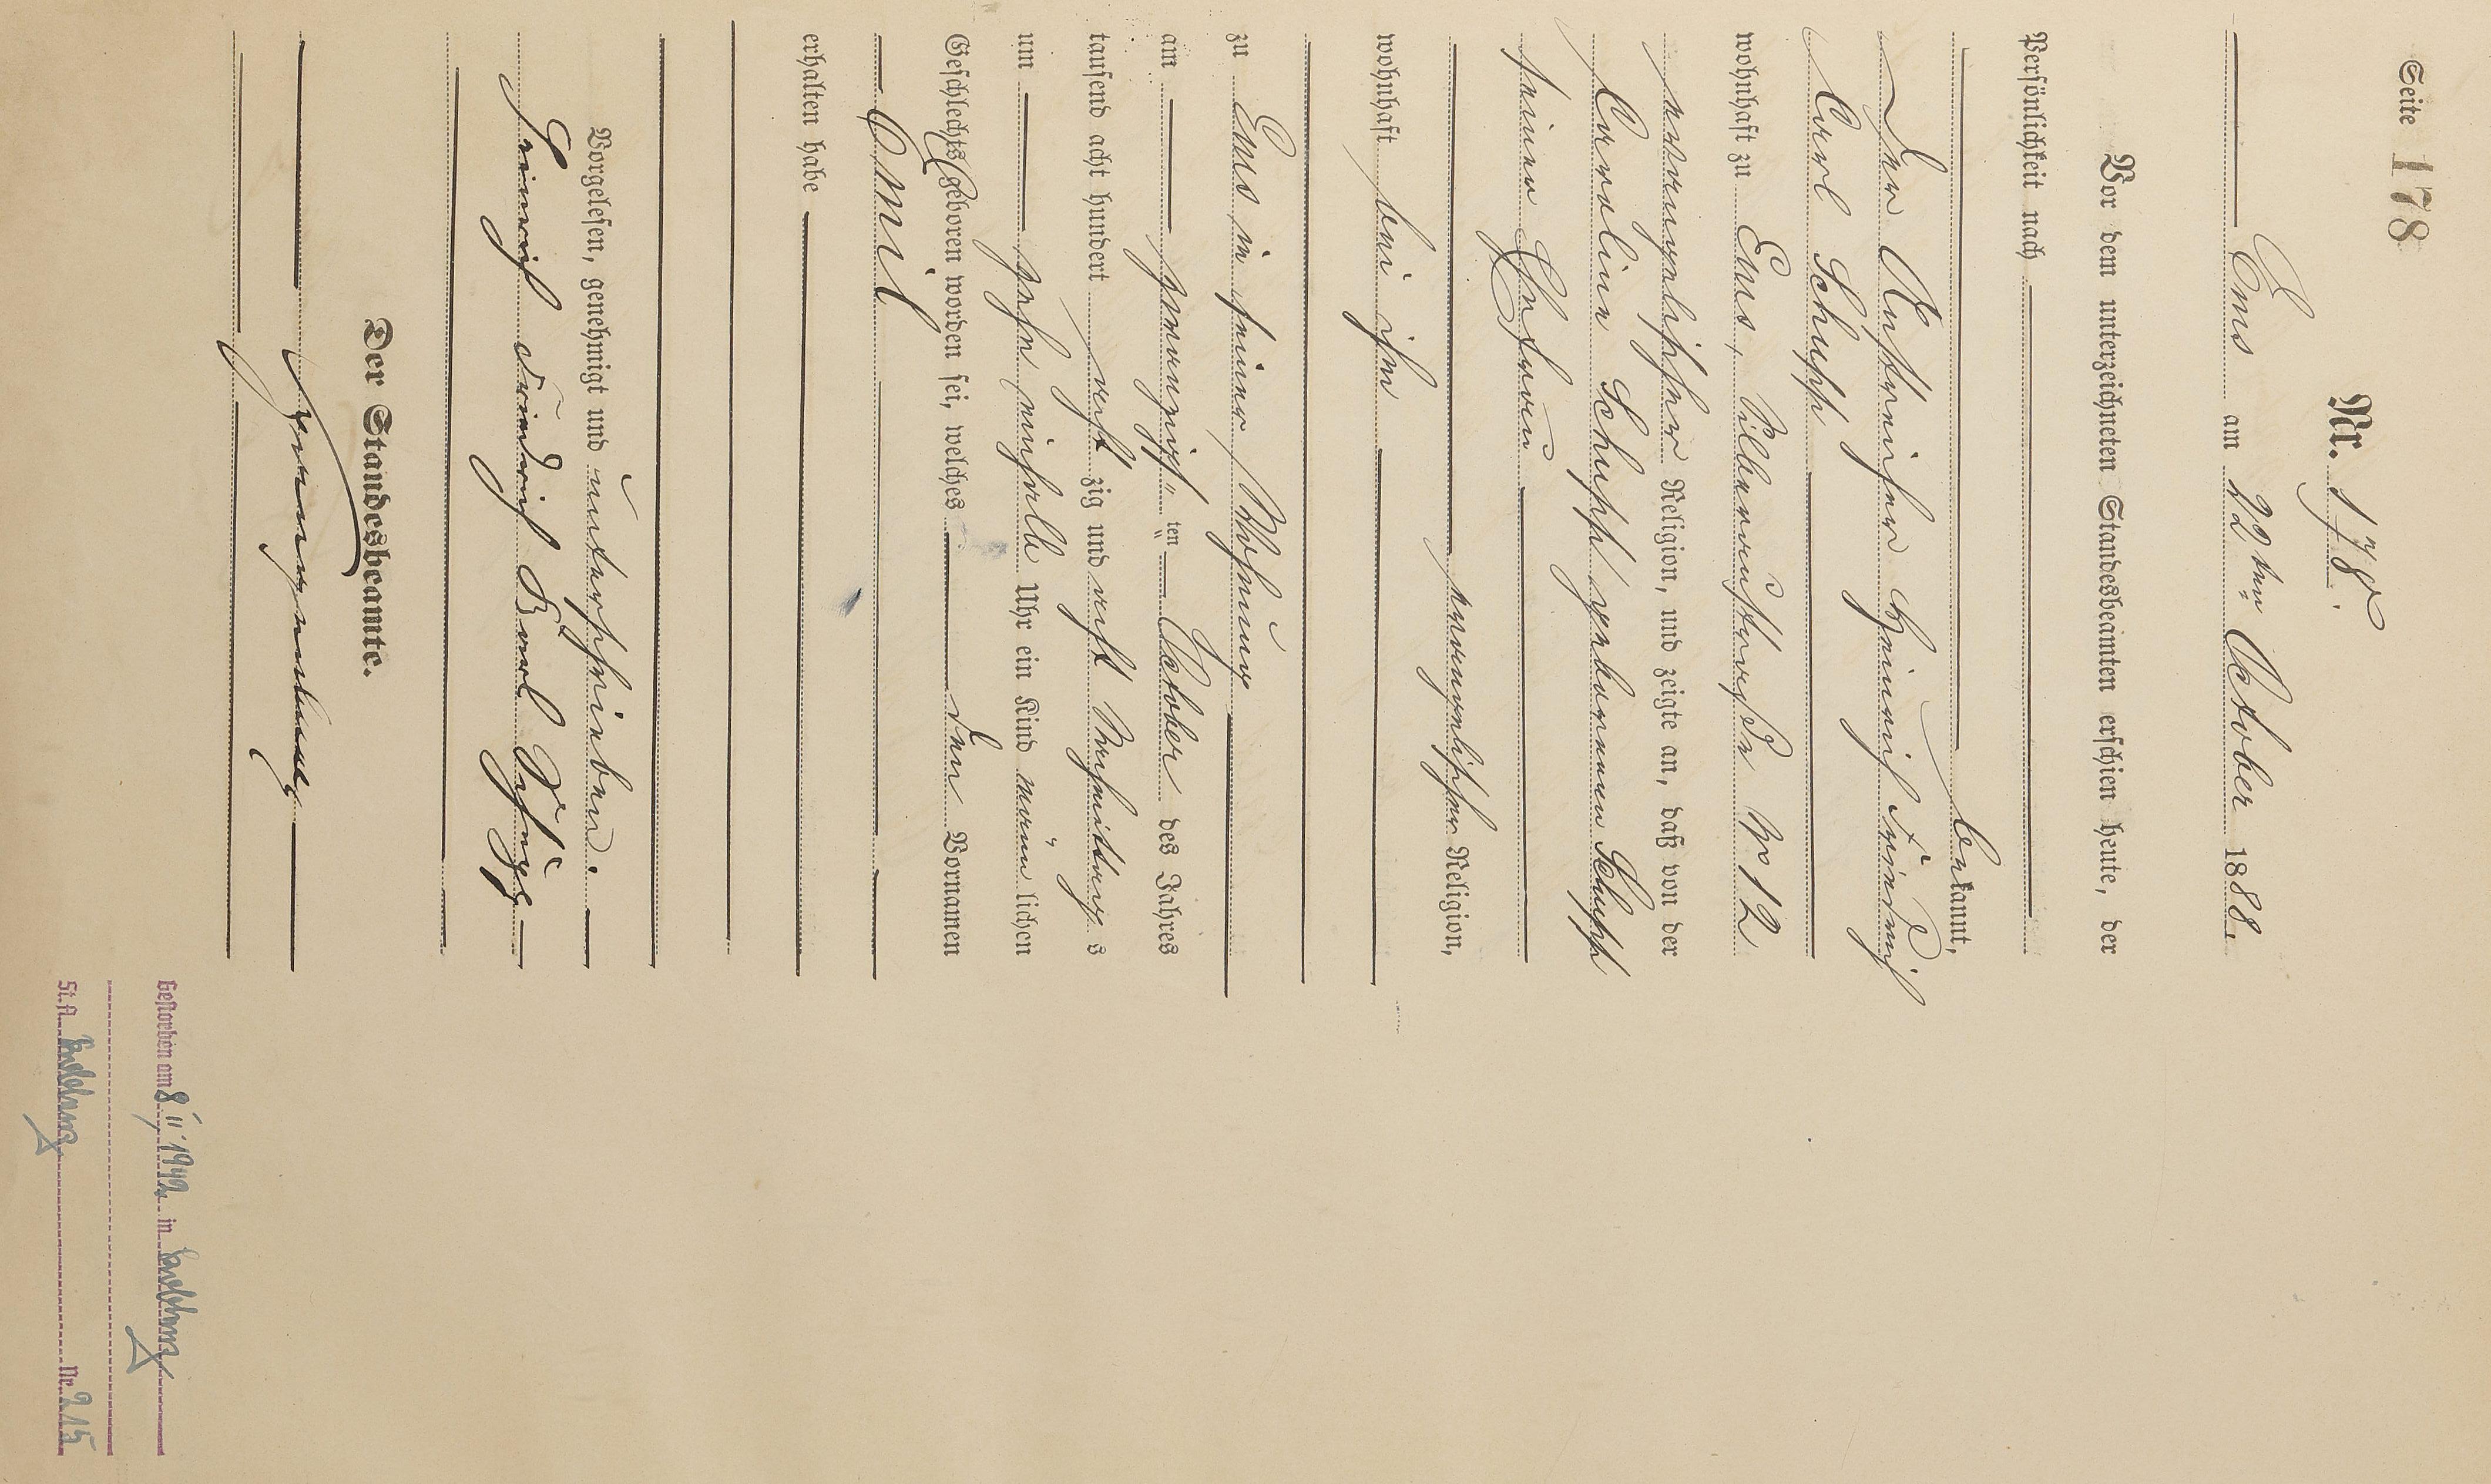 Seite 178
Nr. 178.
Ems am 22ten October 1888.
Vor dem unterzeichneten Standesbeamten erschien heute, der
Persönlichkeit nach
bekannt,
der Anstreicher Heinrich Friedrich
Carl Schupp
wohnhaft zu Ems, Silberaustraße No 12
evangelischer Religion, und zeigte an, daß von der
Caroline Schupp geborenen Schupp
seiner Ehefrau
evangelischer Religion,
wohnhaft bei ihm
zu Ems in seiner Wohnung
am zwanzigsten October des Jahres
tausend acht hundert acht zig und acht Vormittags
um zehn einhalb Uhr ein Kind männlichen
Geschlechts geboren worden sei, welches den Vornamen
Emil
erhalten habe
Vorgelesen, genehmigt und unterschrieben.
Heinrich Friedrich Karl Schupp
Der Standesbeamte.
Gestorben am 8.11.1942 in Koblenz
St.A. Koblenz Nr. 215